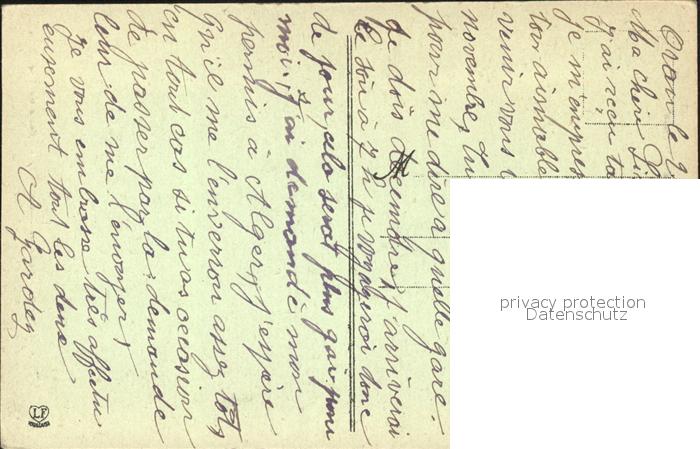 Oran le
Ma chère
j'ai reçu ta
je m'empres
ton aimable
venir vous
novembre,
pour me dire a quelle gare.
je dois décembre j'arriverai
le soir à 7 h je voyagerai donc
de jour cela serait plus gai pour
moi, j'ai demandé mon
permis à Alger, j'espère
qu'il me l'enverron assez tôt,
en tout cas si tu as occasion
de passer par la demande
leur de me l'envoyer,
Je vous embrasse très affectu
eusement tout les deux
A Gardey
privacy protection
Datenschutz
LF